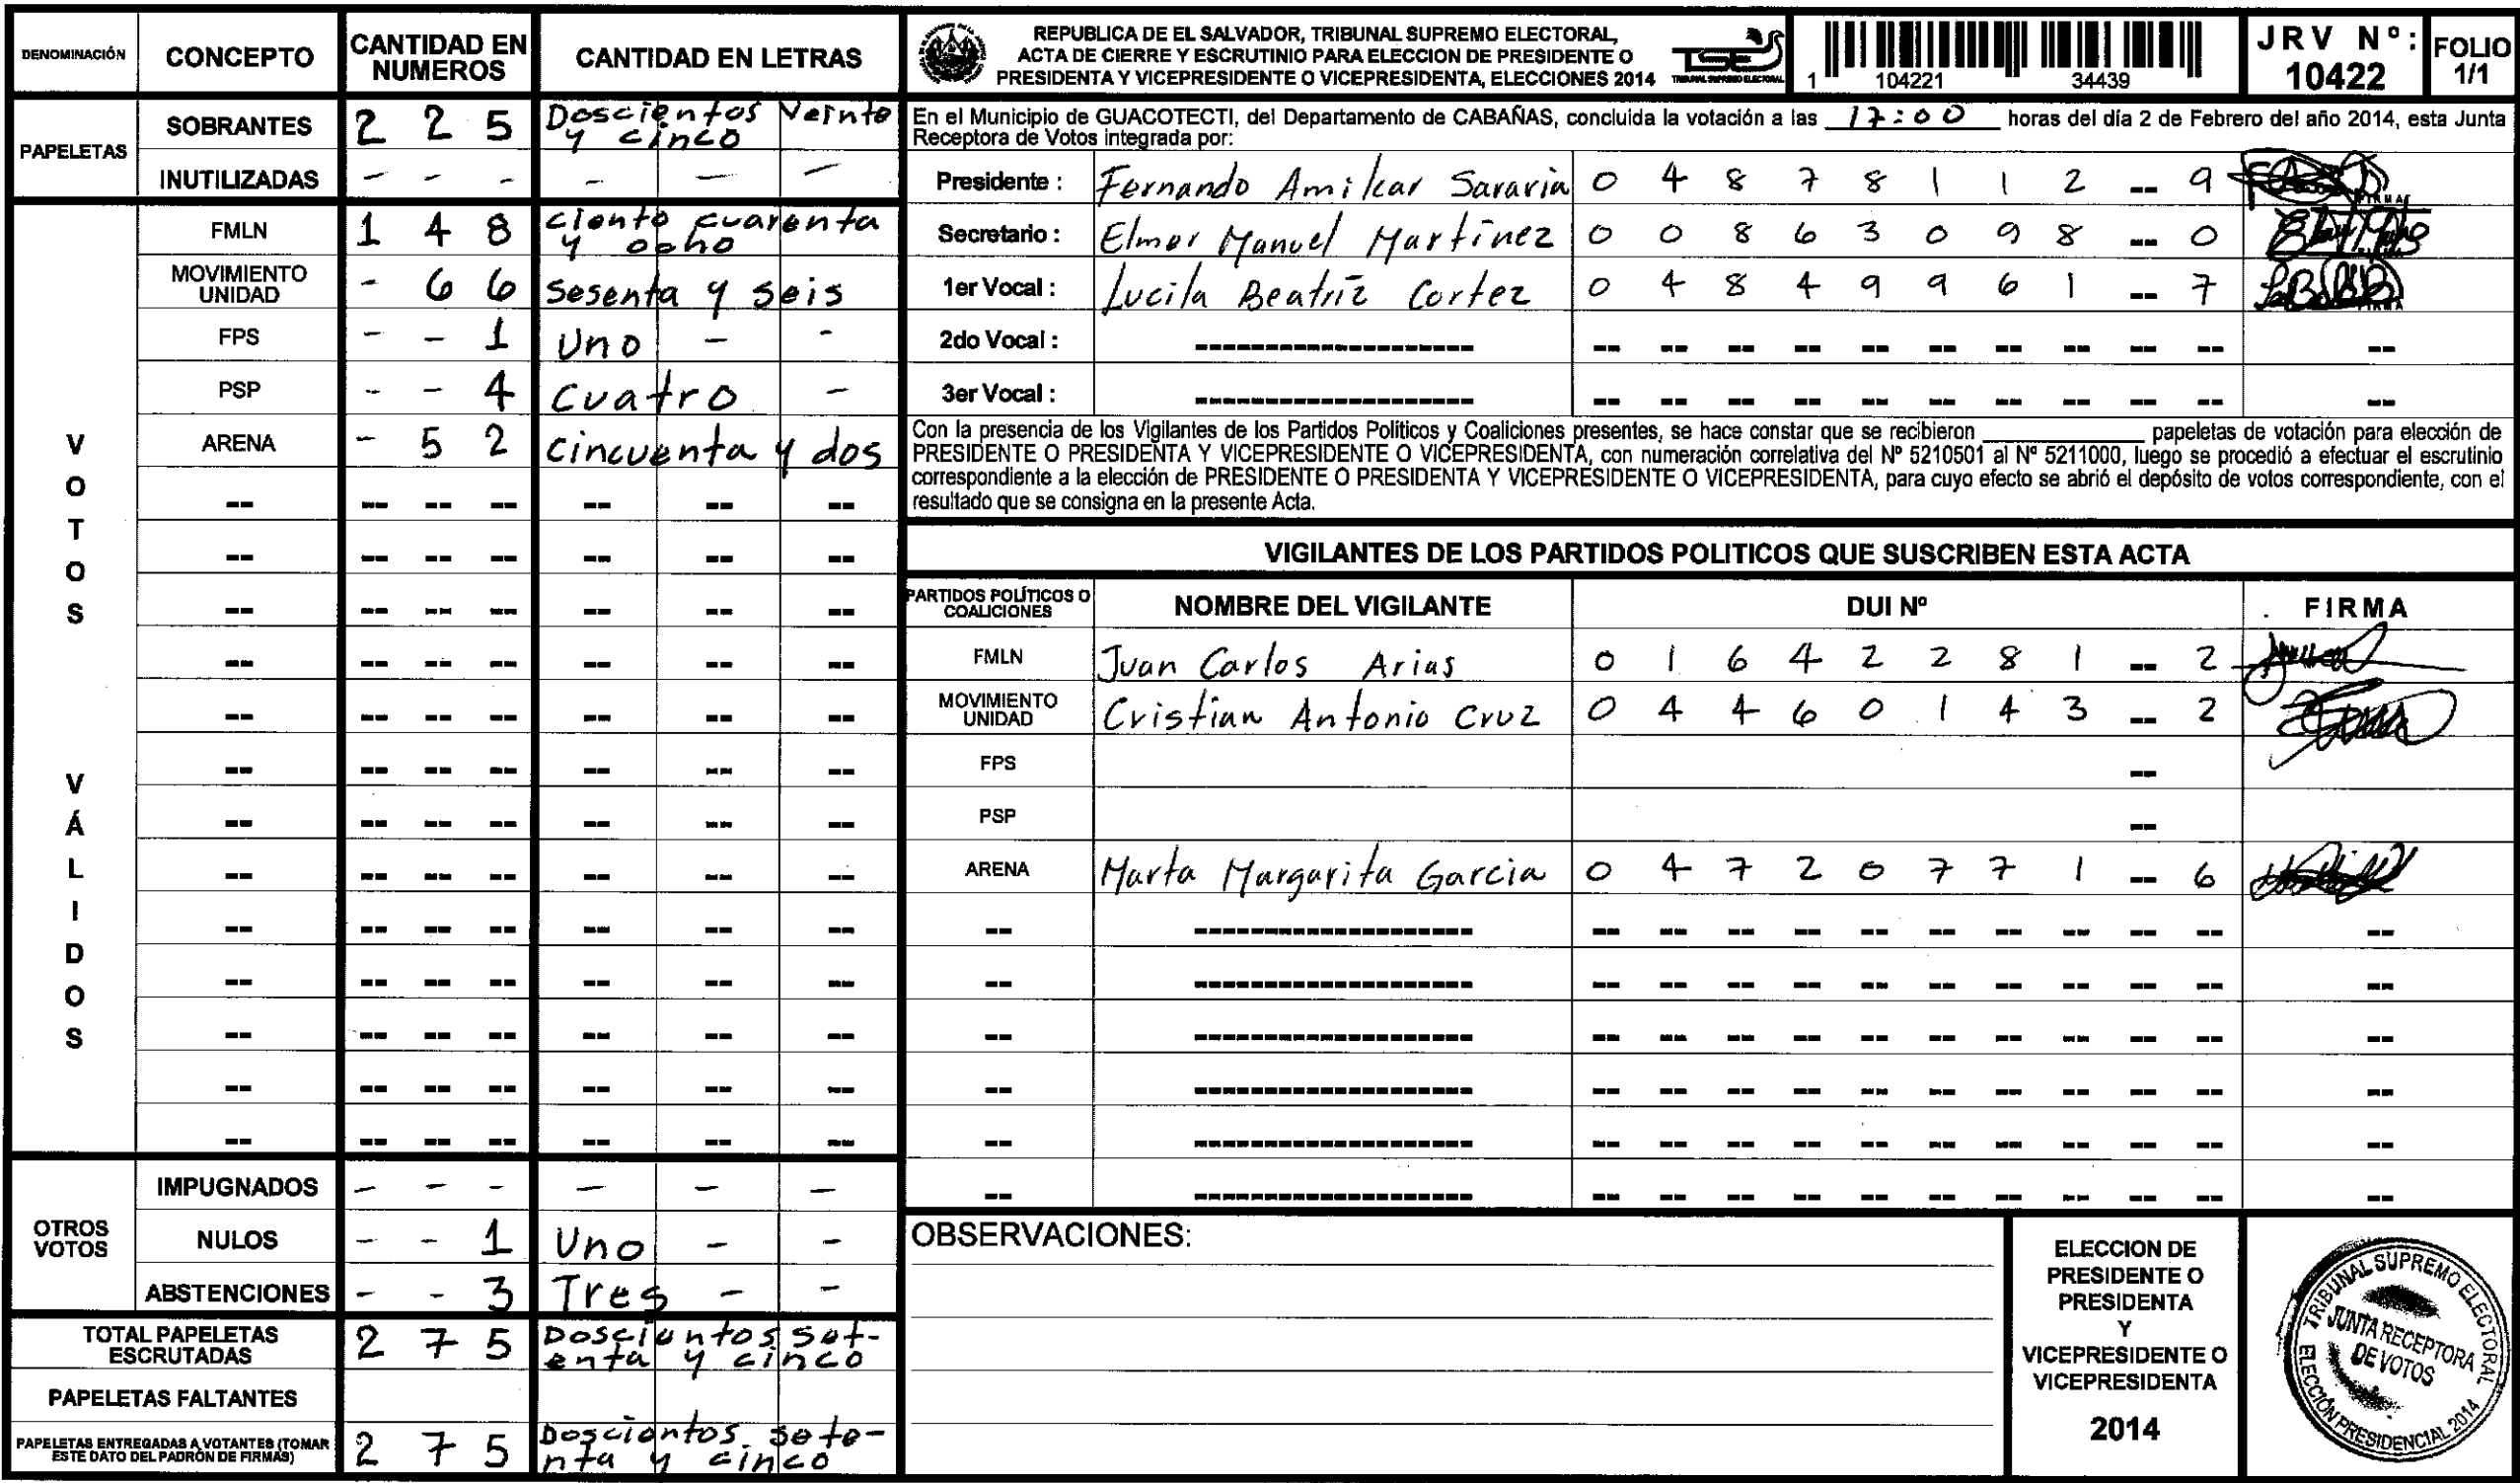 DENOMINACIÓN CONCEPTO CANTIDAD EN NUMEROS CANTIDAD EN LETRAS
PAPELETAS
SOBRANTES 2 2 5 Doscientos Veinte y cinco
INUTILIZADAS - - - - - -
VOTOS VÁLIDOS
FMLN 1 4 8 ciento cuarenta y ocho
MOVIMIENTO UNIDAD - 6 6 Sesenta y seis
FPS - - 1 Uno - -
PSP - - 4 Cuatro -
ARENA - 5 2 cincuenta y dos
-- -- -- -- -- -- --
-- -- -- -- -- -- --
-- -- -- -- -- -- --
-- -- -- -- -- -- --
-- -- -- -- -- -- --
-- -- -- -- -- -- --
-- -- -- -- -- -- --
-- -- -- -- -- -- --
-- -- -- -- -- -- --
-- -- -- -- -- -- --
-- -- -- -- -- -- --
-- -- -- -- -- -- --
-- -- -- -- -- -- --
OTROS VOTOS
IMPUGNADOS - - - - - -
NULOS - - 1 Uno - -
ABSTENCIONES - - 3 Tres - -
TOTAL PAPELETAS ESCRUTADAS 2 7 5 Doscientos set-enta y cinco
PAPELETAS FALTANTES
PAPELETAS ENTREGADAS A VOTANTES (TOMAR ESTE DATO DEL PADRÓN DE FIRMAS) 2 7 5 Doscientos sete-nta y cinco
REPUBLICA DE EL SALVADOR, TRIBUNAL SUPREMO ELECTORAL,
ACTA DE CIERRE Y ESCRUTINIO PARA ELECCION DE PRESIDENTE O
PRESIDENTA Y VICEPRESIDENTE O VICEPRESIDENTA, ELECCIONES 2014
TSE
TRIBUNAL SUPREMO ELECTORAL
1 104221 34439
JRV Nº: 10422
FOLIO 1/1
En el Municipio de GUACOTECTI, del Departamento de CABAÑAS, concluida la votación a las 17:00 horas del día 2 de Febrero del año 2014, esta Junta
Receptora de Votos integrada por:
Presidente : Fernando Amilcar Sararia 0 4 8 7 8 1 1 2 -- 9
Secretario : Elmer Manuel Martinez 0 0 8 6 3 0 9 8 -- 0
1er Vocal : Lucila Beatriz Cortez 0 4 8 4 9 9 6 1 -- 7
2do Vocal : ------------------ -- -- -- -- -- -- -- -- -- -- --
3er Vocal : ------------------ -- -- -- -- -- -- -- -- -- -- --
Con la presencia de los Vigilantes de los Partidos Políticos y Coaliciones presentes, se hace constar que se recibieron ________ papeletas de votación para elección de
PRESIDENTE O PRESIDENTA Y VICEPRESIDENTE O VICEPRESIDENTA, con numeración correlativa del Nº 5210501 al Nº 5211000, luego se procedió a efectuar el escrutinio
correspondiente a la elección de PRESIDENTE O PRESIDENTA Y VICEPRESIDENTE O VICEPRESIDENTA, para cuyo efecto se abrió el depósito de votos correspondiente, con el
resultado que se consigna en la presente Acta.
VIGILANTES DE LOS PARTIDOS POLITICOS QUE SUSCRIBEN ESTA ACTA
PARTIDOS POLÍTICOS O COALICIONES NOMBRE DEL VIGILANTE DUI Nº FIRMA
FMLN Juan Carlos Arias 0 1 6 4 2 2 8 1 -- 2
MOVIMIENTO UNIDAD Cristian Antonio Cruz 0 4 4 6 0 1 4 3 -- 2
FPS --
PSP --
ARENA Marta Margarita Garcia 0 4 7 2 0 7 7 1 -- 6
-- ------------------ -- -- -- -- -- -- -- -- -- -- --
-- ------------------ -- -- -- -- -- -- -- -- -- -- --
-- ------------------ -- -- -- -- -- -- -- -- -- -- --
-- ------------------ -- -- -- -- -- -- -- -- -- -- --
-- ------------------ -- -- -- -- -- -- -- -- -- -- --
-- ------------------ -- -- -- -- -- -- -- -- -- -- --
OBSERVACIONES:
ELECCION DE
PRESIDENTE O
PRESIDENTA
Y
VICEPRESIDENTE O
VICEPRESIDENTA
2014
TRIBUNAL SUPREMO ELECTORAL
JUNTA RECEPTORA
DE VOTOS
ELECCIÓN PRESIDENCIAL 2014